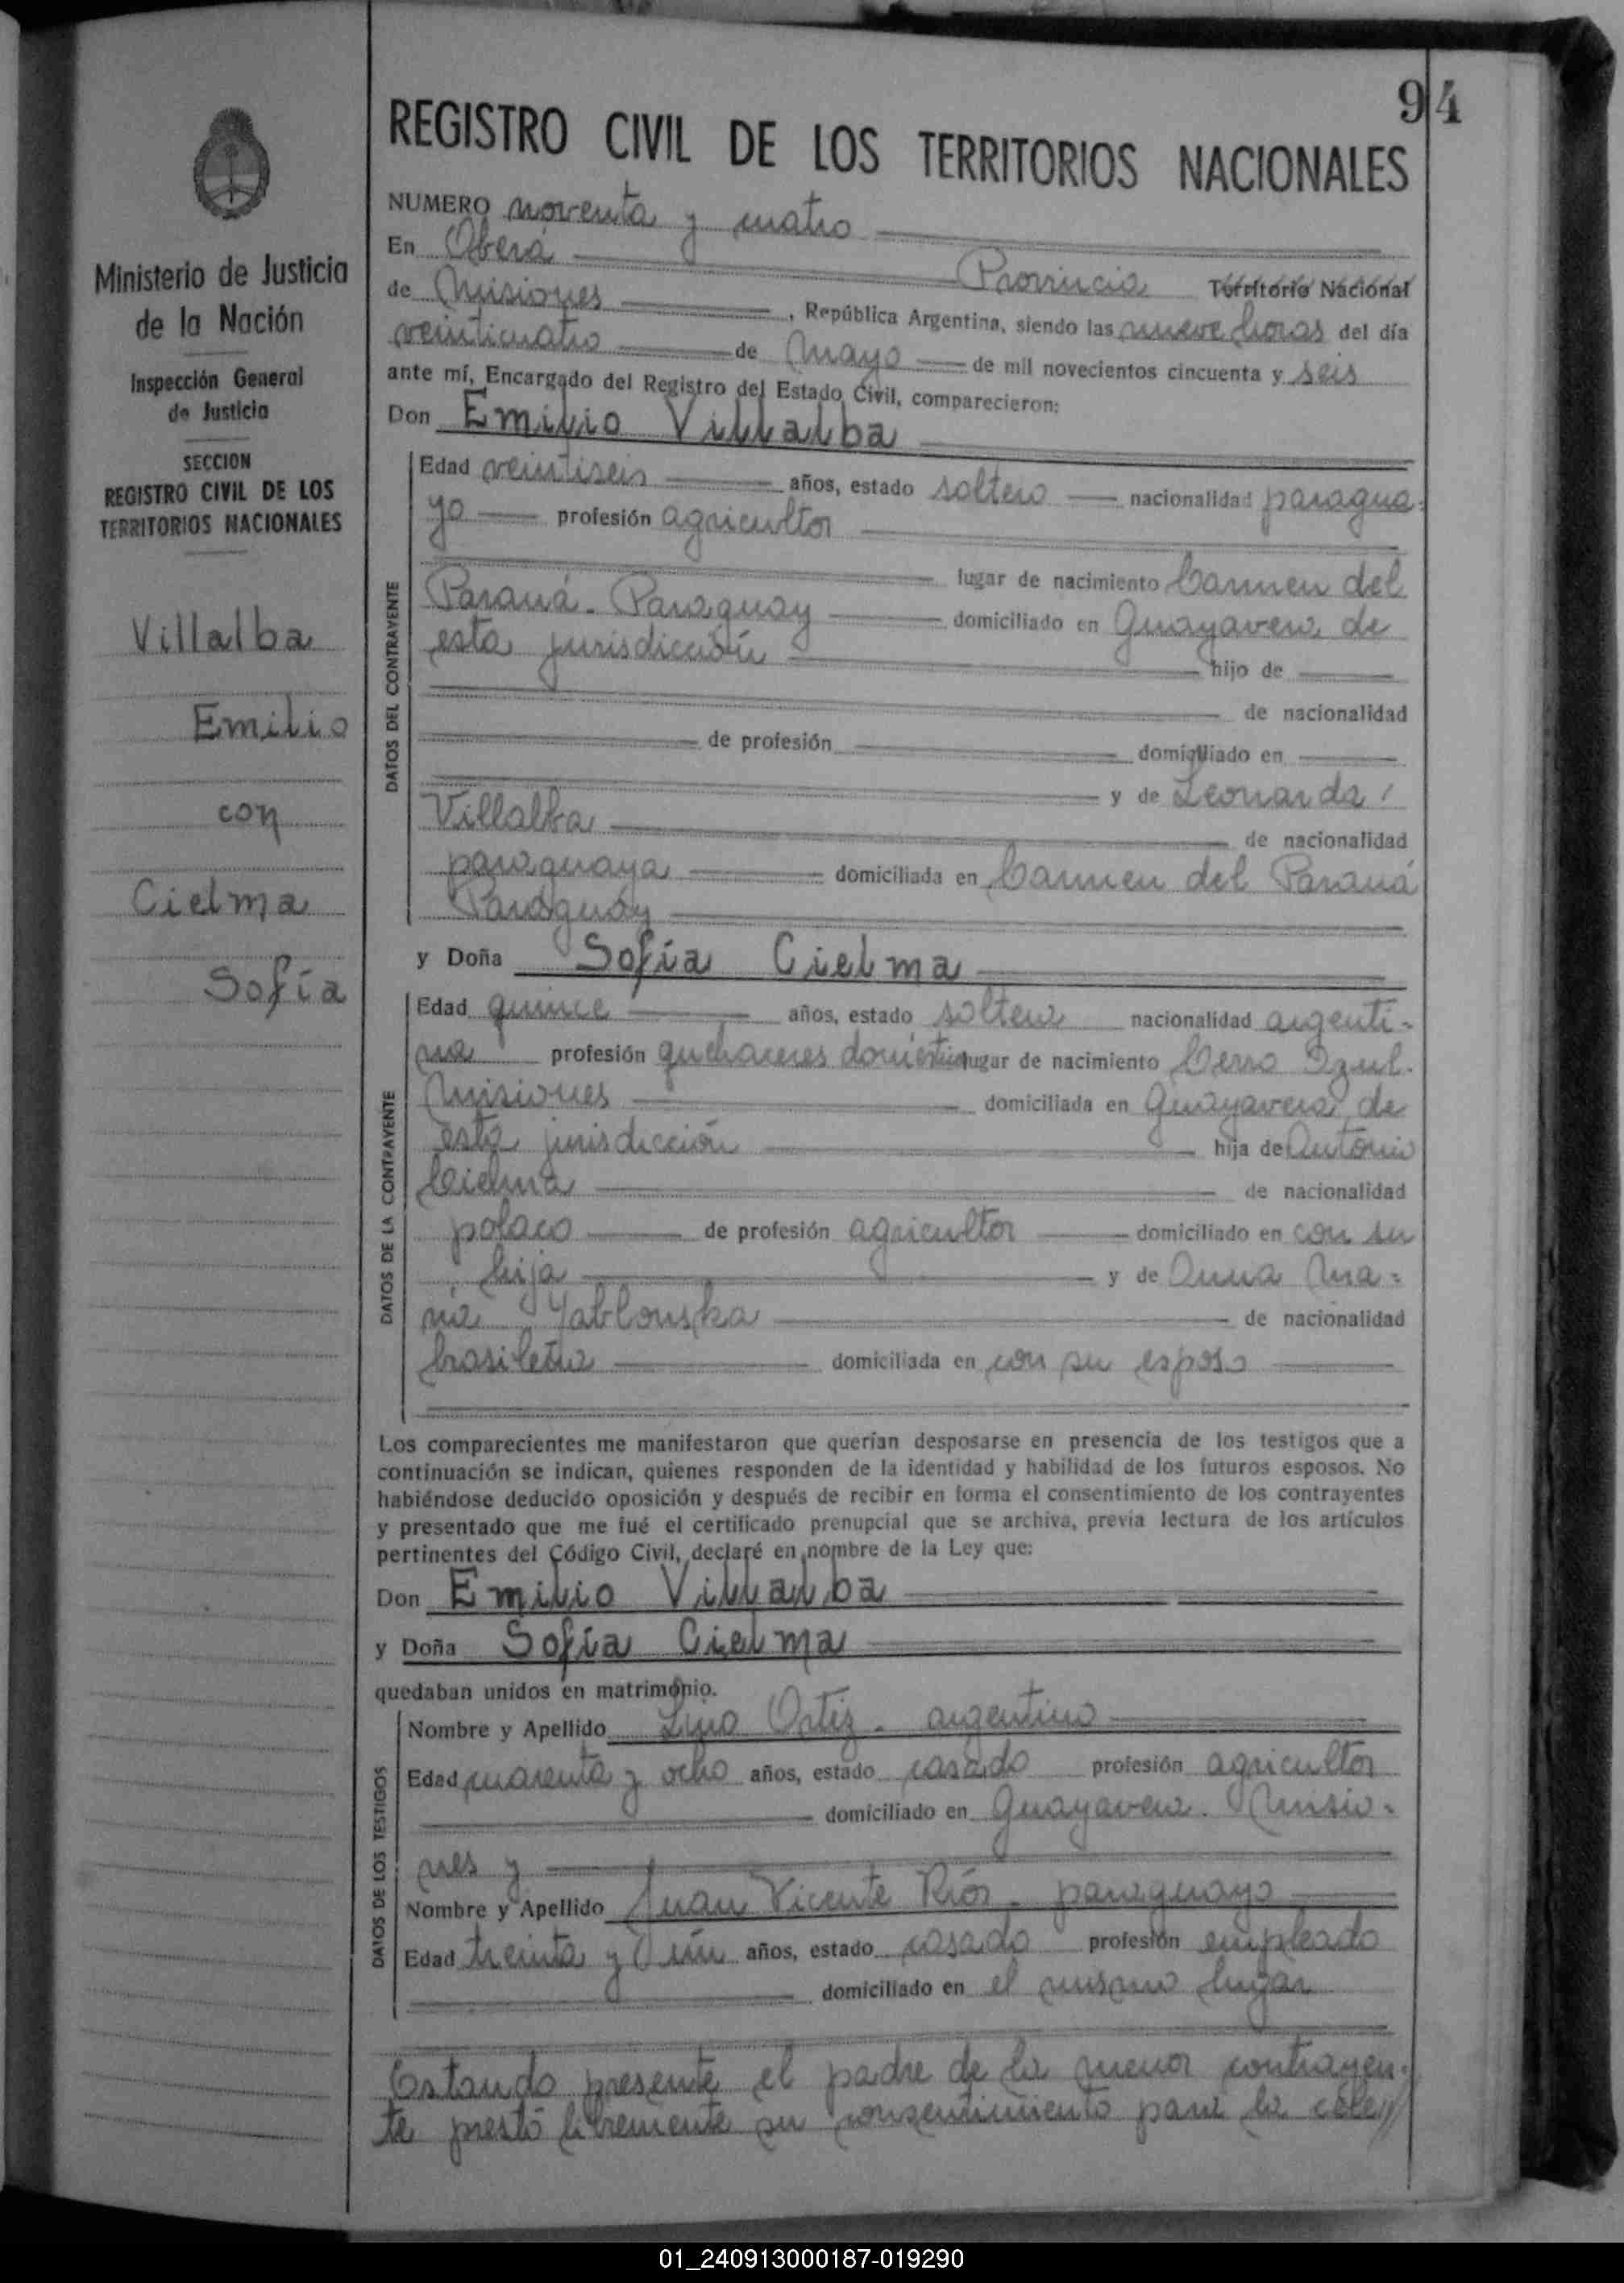 94
REGISTRO CIVIL DE LOS TERRITORIOS NACIONALES
Ministerio de Justicia
de la Nación
Inspección General
de Justicia
SECCION
REGISTRO CIVIL DE LOS
TERRITORIOS NACIONALES
Villalba
Emilio
con
Cielma
Sofía
NUMERO noventa y cuatro
En Oberá Provincia Territorio Nacional
de Misiones, República Argentina, siendo las nueve horas del día
veinticuatro de Mayo de mil novecientos cincuenta y seis
ante mí, Encargado del Registro del Estado Civil, comparecieron:
Don Emilio Villalba
DATOS DEL CONTRAYENTE
Edad veintiseis años, estado soltero nacionalidad paragua-
yo profesión agricultor
lugar de nacimiento Carmen del
Paraná - Paraguay domiciliado en Guayavera de
esta jurisdicción hijo de
de nacionalidad
de profesión domiciliado en
y de Leonarda
Villalba de nacionalidad
paraguaya domiciliada en Carmen del Paraná
Paraguay
y Doña Sofía Cielma
DATOS DE LA CONTRAYENTE
Edad quince años, estado soltera nacionalidad argenti-
na profesión quehaceres domésticos lugar de nacimiento Cerro Azul.
Misiones domiciliada en Guayavera de
esta jurisdicción hija de Antonio
Cielma de nacionalidad
polaco de profesión agricultor domiciliado en con su
hija y de Anna Ma-
ria Yablonska de nacionalidad
brasileña domiciliada en con su esposo
Los comparecientes me manifestaron que querían desposarse en presencia de los testigos que a
continuación se indican, quienes responden de la identidad y habilidad de los futuros esposos. No
habiéndose deducido oposición y después de recibir en forma el consentimiento de los contrayentes
y presentado que me fué el certificado prenupcial que se archiva, previa lectura de los artículos
pertinentes del Código Civil, declaré en nombre de la Ley que:
Don Emilio Villalba
y Doña Sofía Cielma
quedaban unidos en matrimonio.
DATOS DE LOS TESTIGOS
Nombre y Apellido Lino Ortiz - argentino
Edad cuarenta y ocho años, estado casado profesión agricultor
domiciliado en Guayavera. Misio-
nes y
Nombre y Apellido Juan Vicente Ríos - paraguayo
Edad treinta y un años, estado casado profesión empleado
domiciliado en el mismo lugar
Estando presente el padre de la menor contrayen-
te prestó libremente su consentimiento para la cele//
01_240913000187-019290